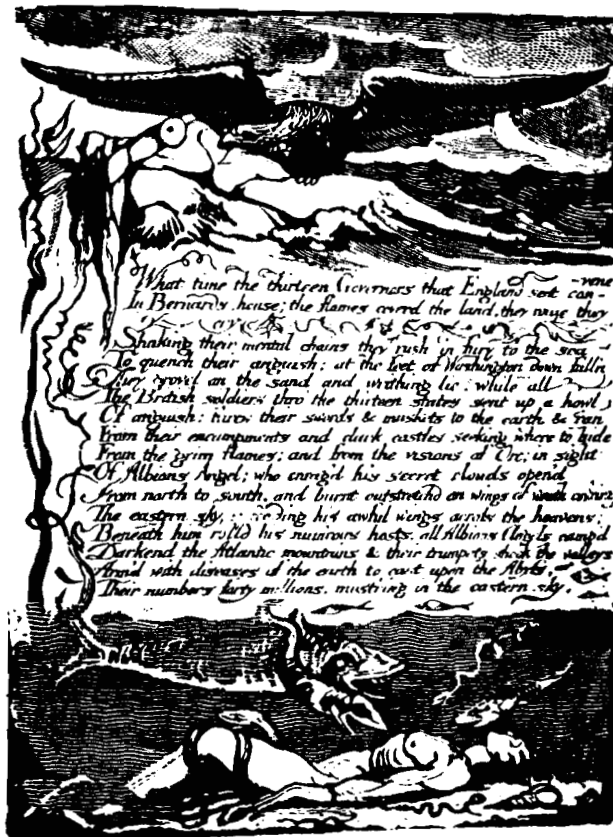 What time the thirteen Governors that England sent con-
-vene
In Bernards house; the flames coverd the land, they rouze they
cry
Shaking their mental chains they rush in fury to the sea
To quench their anguish; at the feet of Washington down falln
They grovel on the sand and writhing lie, while all
The British soldiers thro the thirteen states sent up a howl
Of anguish: threw their swords & muskets to the earth & ran
From their encampments and dark castles seeking where to hide
From the grim flames; and from the visions of Orc; in sight
Of Albions Angel; who enrag'd his secret clouds open'd
From north to south, and burnt outstretchd on wings of wrath
The eastern sky, his awful wings across the heavens;
Beneath him rolld his numrous hosts, all Albions Angels camp'd
Darkend the Atlantic mountains & their trumpets shook the valleys
Arm'd with diseases of the earth to cast upon the Abyss,
Their numbers forty millions, mustring in the eastern sky.